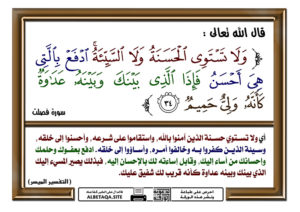 قال الله تعالى :
﴿ وَلَا تَسْتَوِي الْحَسَنَةُ وَلَا السَّيِّئَةُ ۚ ادْفَعْ بِالَّتِي
هِيَ أَحْسَنُ فَإِذَا الَّذِي بَيْنَكَ وَبَيْنَهُ عَدَاوَةٌ
كَأَنَّهُ وَلِيٌّ حَمِيمٌ ٣٤ ﴾
سورة فصلت
أي ولا تستوي حسنة الذين آمنوا بالله، واستقاموا على شرعه، وأحسنوا إلى خلقه،
وسيئة الذين كفروا به وخالفوا أمره، وأساؤوا إلى خلقه. ادفع بعفوك وحلمك
وإحسانك من أساء إليك، وقابل إساءته لك بالإحسان إليه، فبذلك يصير المسيء إليك
الذي بينك وبينه عداوة كأنه قريب لك شفيق عليك.
(التفسير الميسر)
ALBETAQA.SITE